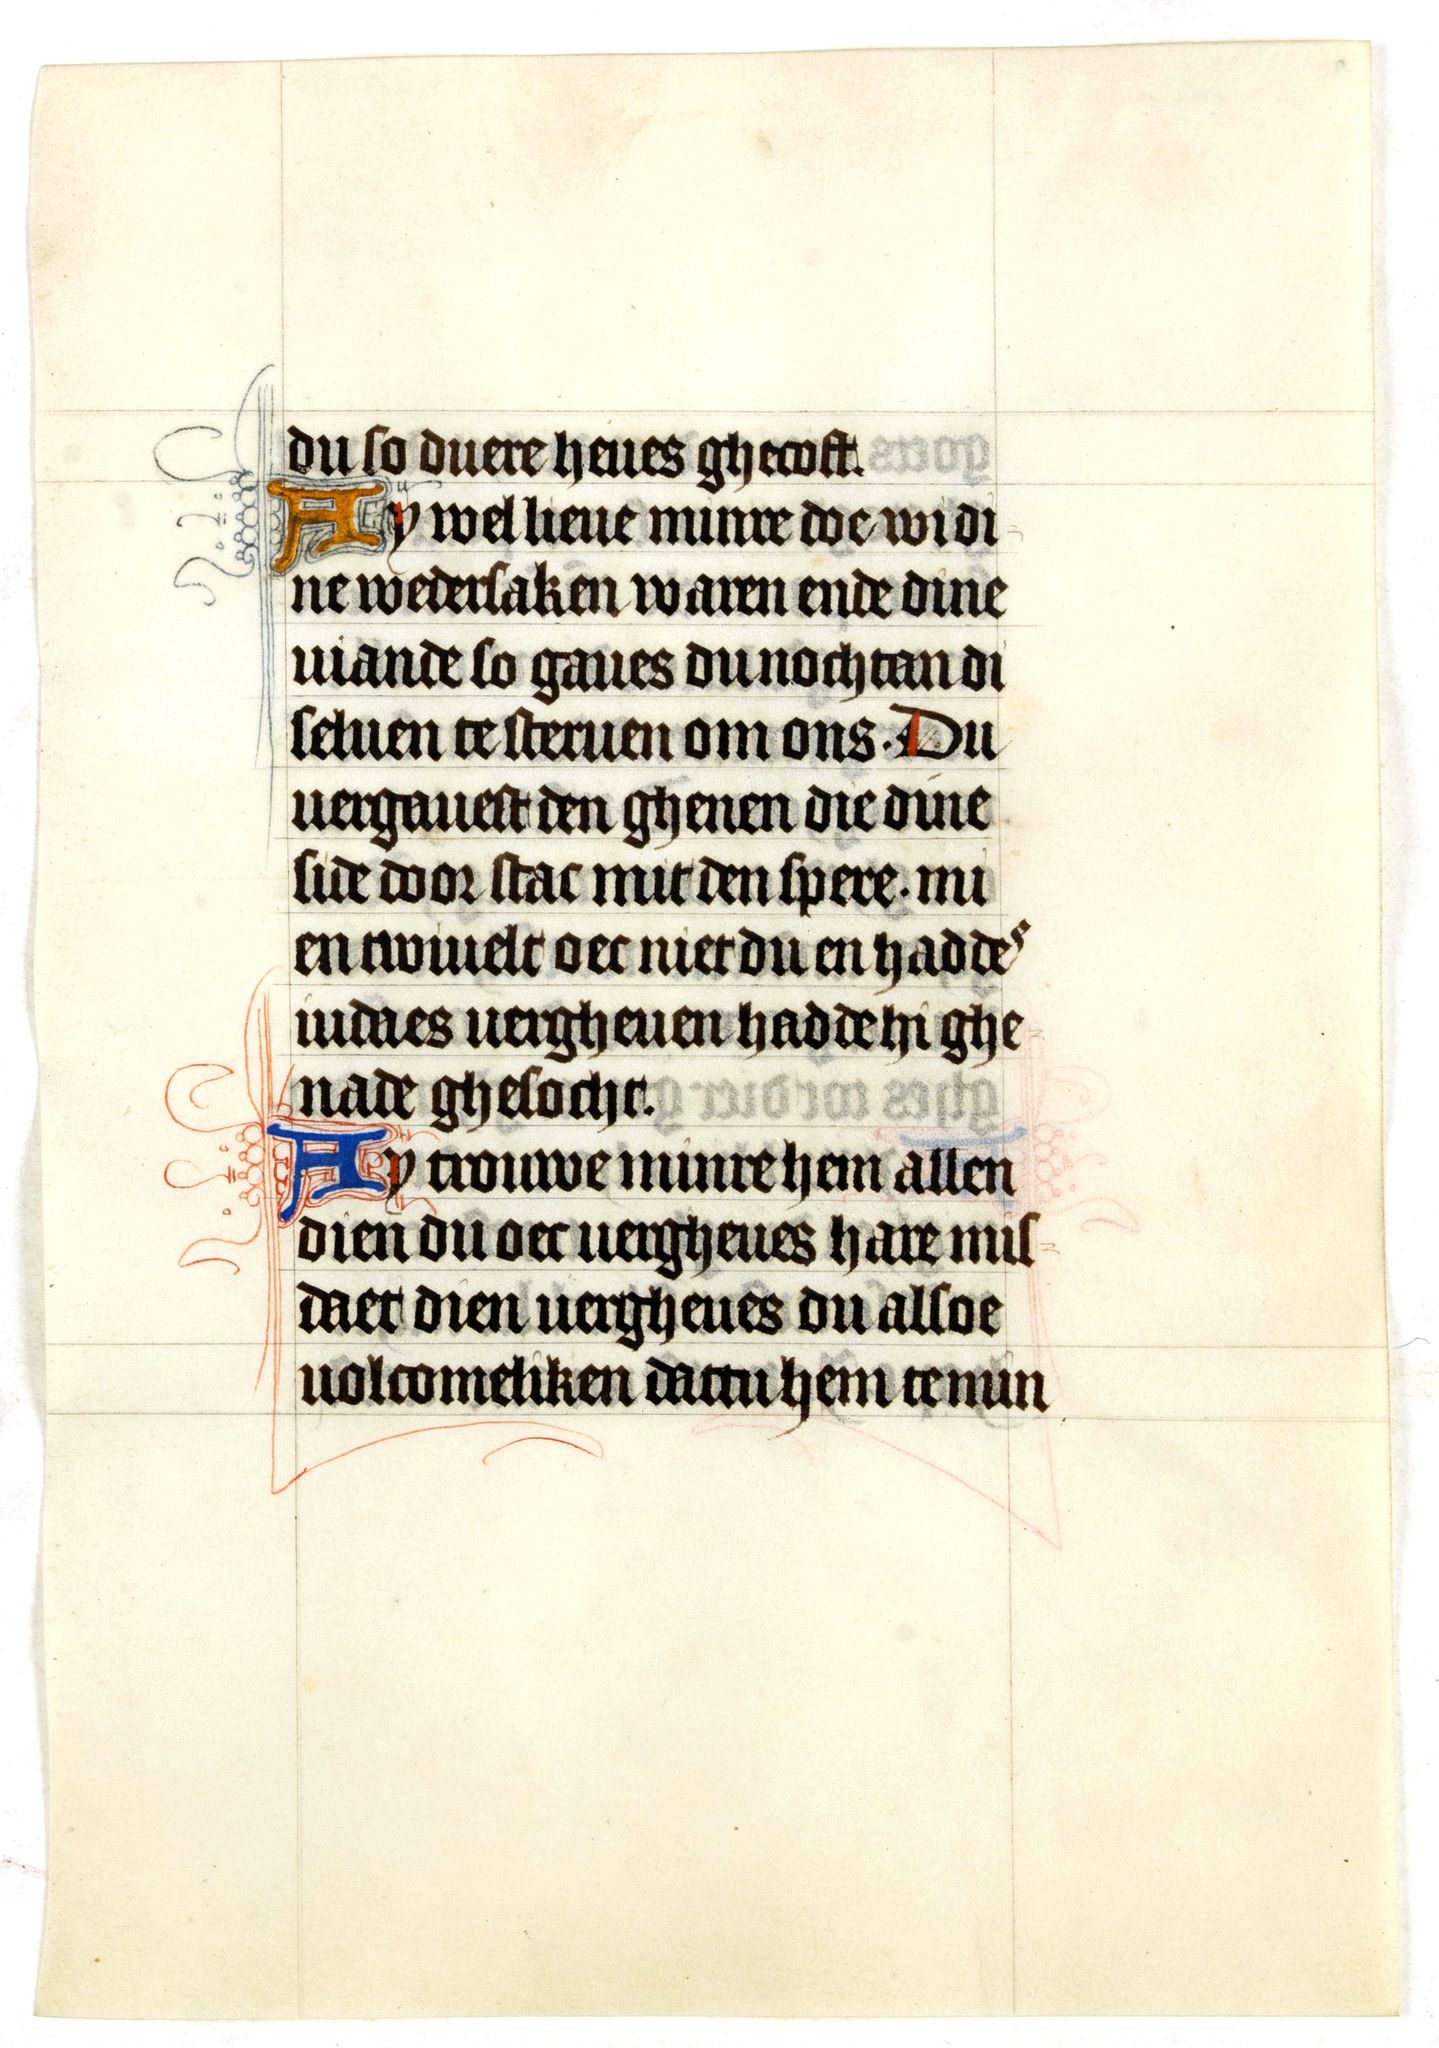 du so duere heues ghecost.
Ay wel lieue minre doe wi di-
ne wedersaken waren ende dine
uiande so gaues du nochtan di
seluen te steruen om ons. Du
uergauest den ghenen die dine
side door stac mit den spere. mi
en twiuelt oec niet du en haddes
iudaes uergheuen hadde hi ghe-
nade ghesocht.
Ay trouwe minre hem allen
dien du oec uergheues hare mis-
daet dien uergheues du alsoe
uolcomeliken dattu hem te min